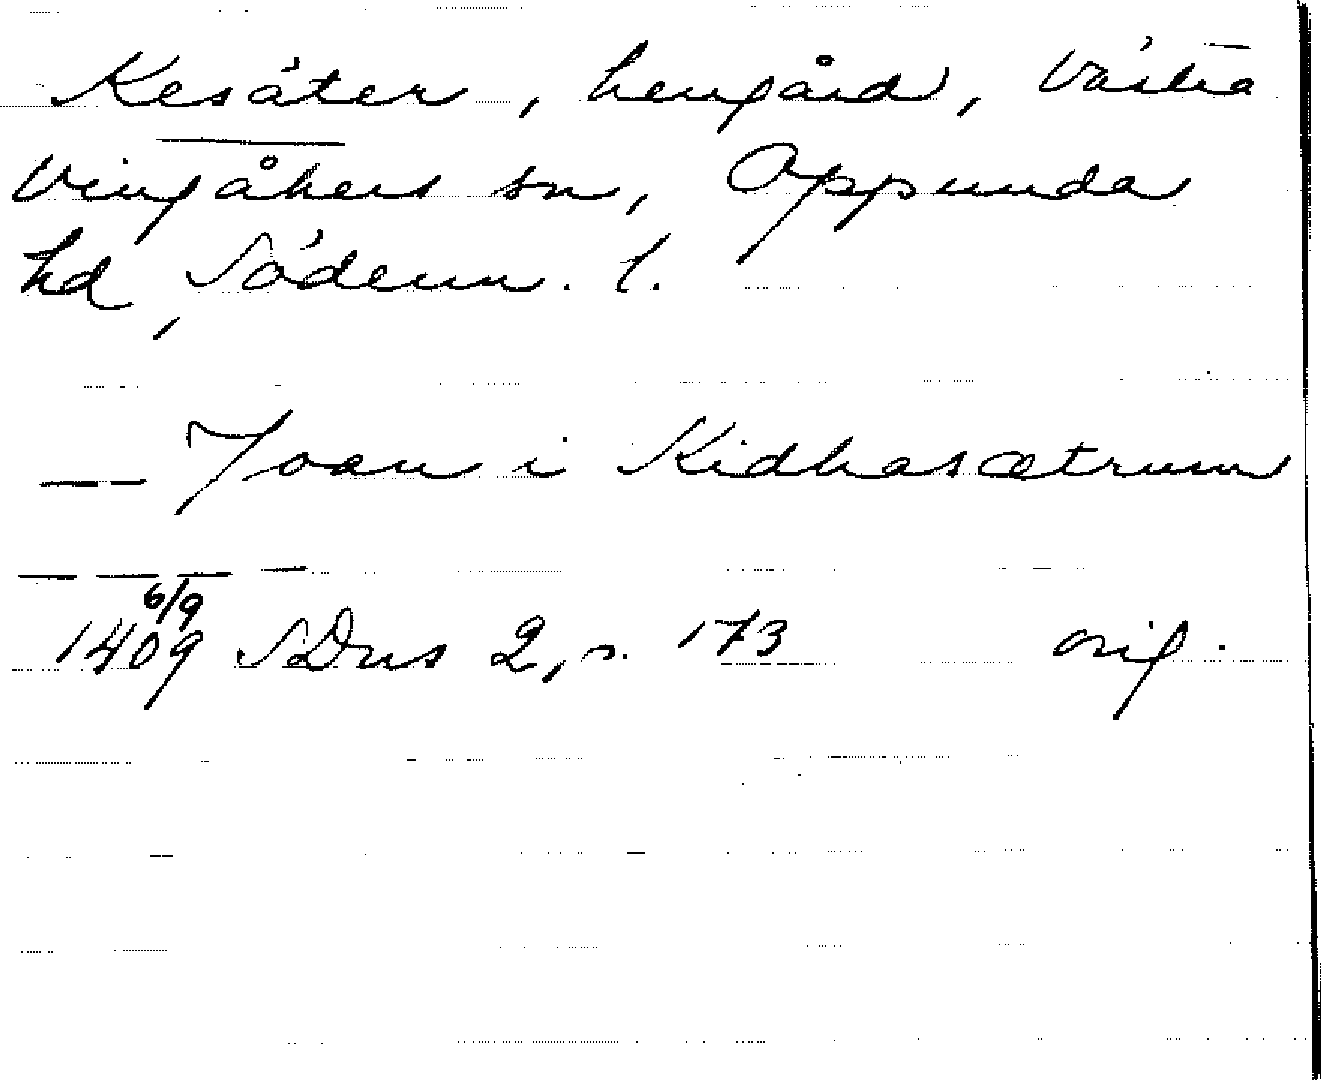 Kesäter, herrgård, Västra
Vingåkers sn, Oppunda
hd, Söderm. l.
— Joan i Kidhasætrum
— — — —
6/9
1409 SDns 2, s. 173 orig.